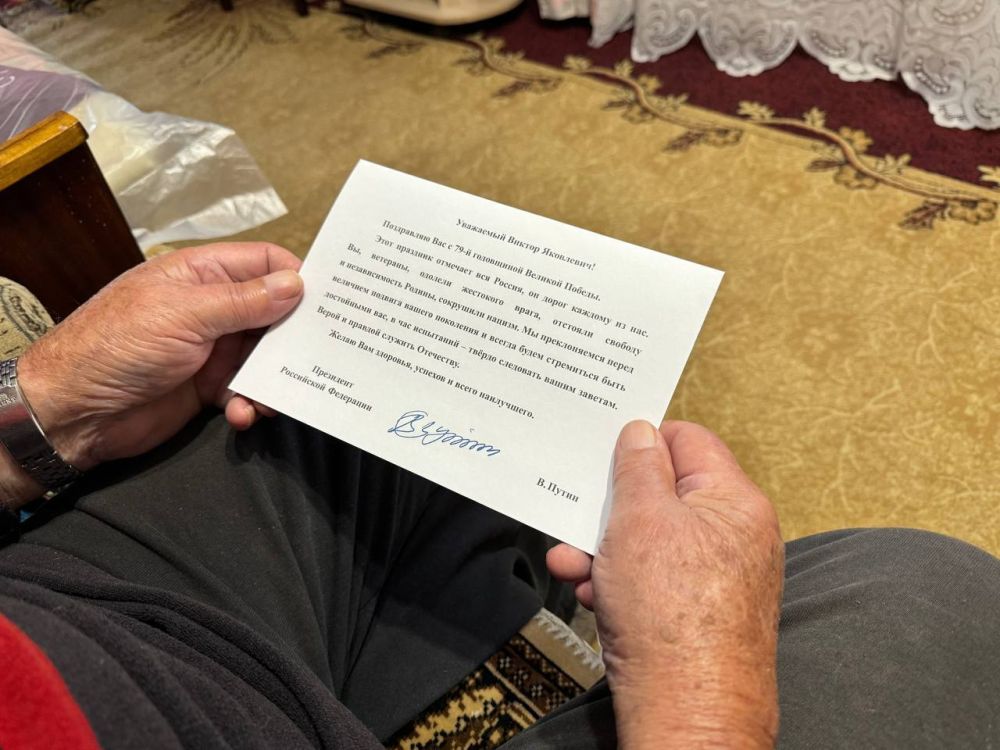 Уважаемый Виктор Яковлевич!
Поздравляю Вас с 79-й годовщиной Великой Победы.
Этот праздник отмечает вся Россия, он дорог каждому из нас.
Вы, ветераны, одолели жестокого врага, отстояли свободу
и независимость Родины, сокрушили нацизм. Мы преклоняемся перед
величием подвига вашего поколения и всегда будем стремиться быть
достойными вас, в час испытаний – твёрдо следовать вашим заветам.
Верой и правдой служить Отечеству.
Желаю Вам здоровья, успехов и всего наилучшего.
Президент
Российской Федерации
В.Путин